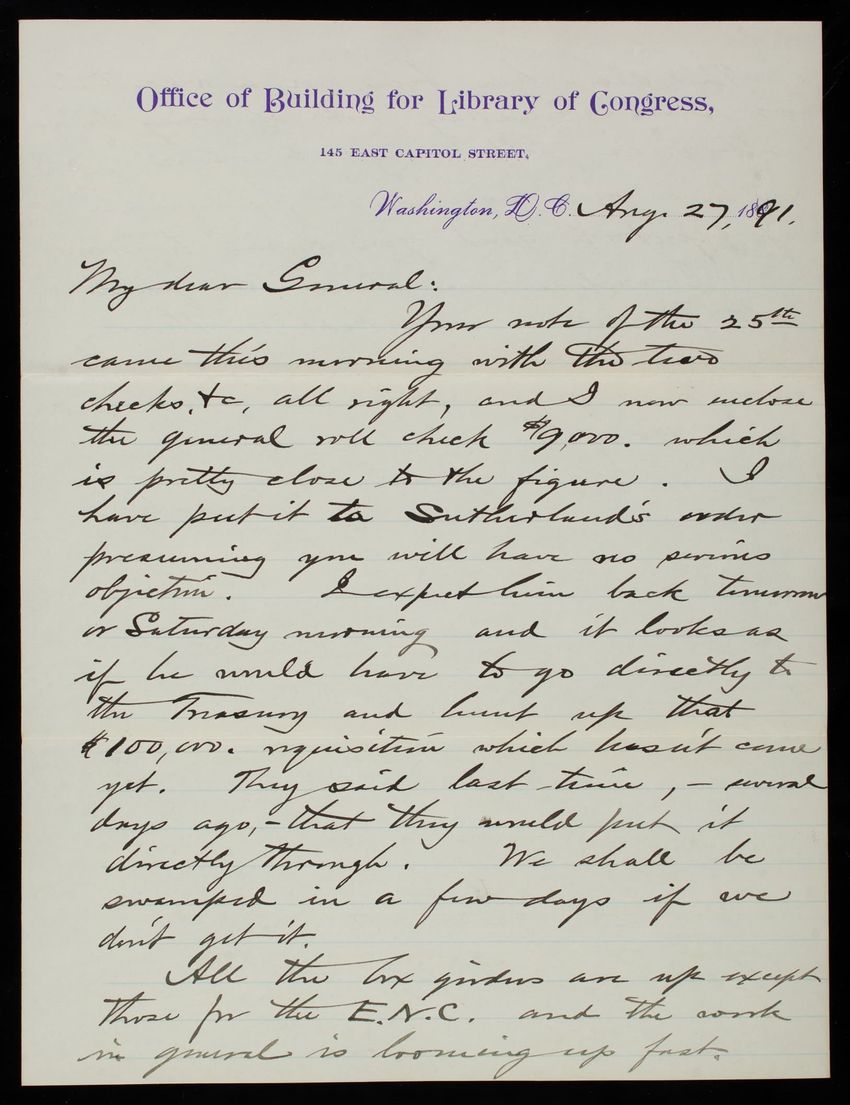 Office of Building for Library of Congress,
145 EAST CAPITOL STREET,
Washington, D. C. Aug. 27, 1891.
My dear General:
Your note of the 25th
came this morning with the two
checks, &c, all right, and I now enclose
the general roll check $9,000. which
is pretty close to the figure. I
have put it to Sutherland's order
presuming you will have no serious
objection. I expect him back tomorrow
or Saturday morning and it looks as
if he would have to go directly to
the Treasury and hunt up that
$100,000. requisition which hasn't come
yet. They said last time, – several
days ago, – that they would put it
directly through. We shall be
swamped in a few days if we
don't get it.
All the box girders are up except
those for the E.N.C. and the work
in general is looming up fast.